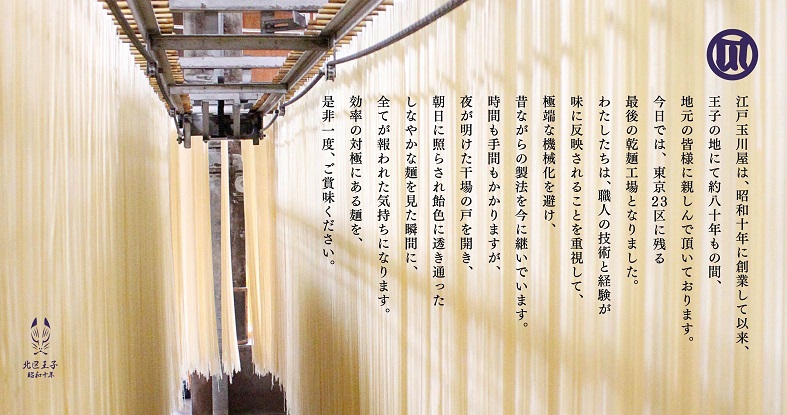 江戸玉川屋は、昭和十年に創業して以来、
王子の地にて約八十年もの間、
地元の皆様に親しんで頂いております。
今日では、東京23区に残る
最後の乾麺工場となりました。
わたしたちは、職人の技術と経験が
味に反映されることを重視して、
極端な機械化を避け、
昔ながらの製法を今に継いでいます。
時間も手間もかかりますが、
夜が明けた干場の戸を開き、
朝日に照らされ飴色に透き通った
しなやかな麺を見た瞬間に、
全てが報われた気持ちになります。
効率の対極にある麺を、
是非一度、ご賞味ください。
北区王子
昭和十年